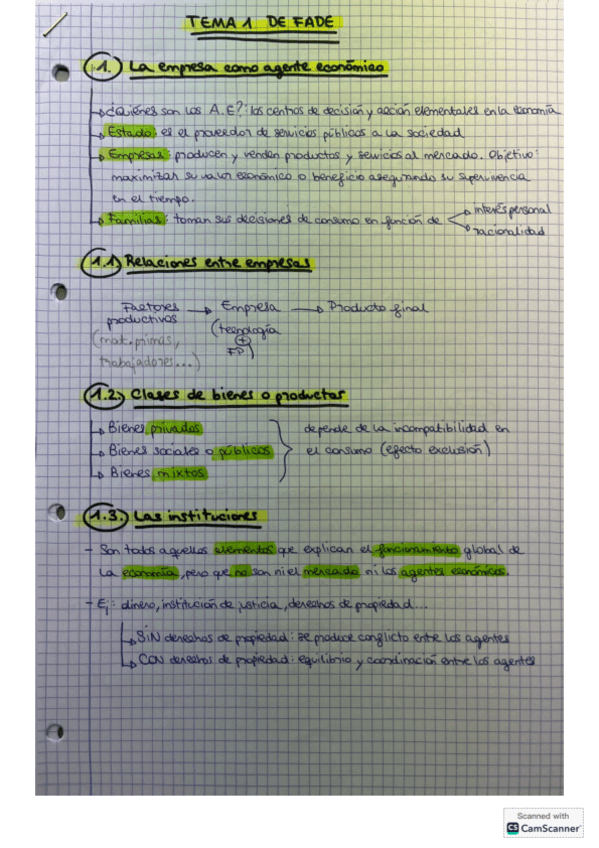 TEMA 1 DE FADE
1. La empresa como agente económico
¿Quiénes son los A.E?: los centros de decisión y acción elementales en la economía
Estado: es el proveedor de servicios públicos a la sociedad
Empresas: producen y venden productos y servicios al mercado. Objetivo:
maximizar su valor económico o beneficio asegurando su supervivencia
en el tiempo.
Familias: toman sus decisiones de consumo en función de
interés personal
racionalidad
1.1) Relaciones entre empresas
Factores productivos → Empresa → Producto final
(mat. primas, trabajadores...)
(tecnología + FP)
1.2. Clases de bienes o productos
Bienes privados
Bienes sociales o públicos
Bienes mixtos
depende de la incompatibilidad en
el consumo (efecto exclusión)
1.3. Las instituciones
- Son todos aquellos elementos que explican el funcionamiento global de
la economía, pero que no son ni el mercado ni los agentes económicos.
- Ej: dinero, institución de justicia, derechos de propiedad...
SIN derechos de propiedad: se produce conflicto entre los agentes
CON derechos de propiedad: equilibrio y coordinación entre los agentes
Scanned with
CS CamScanner